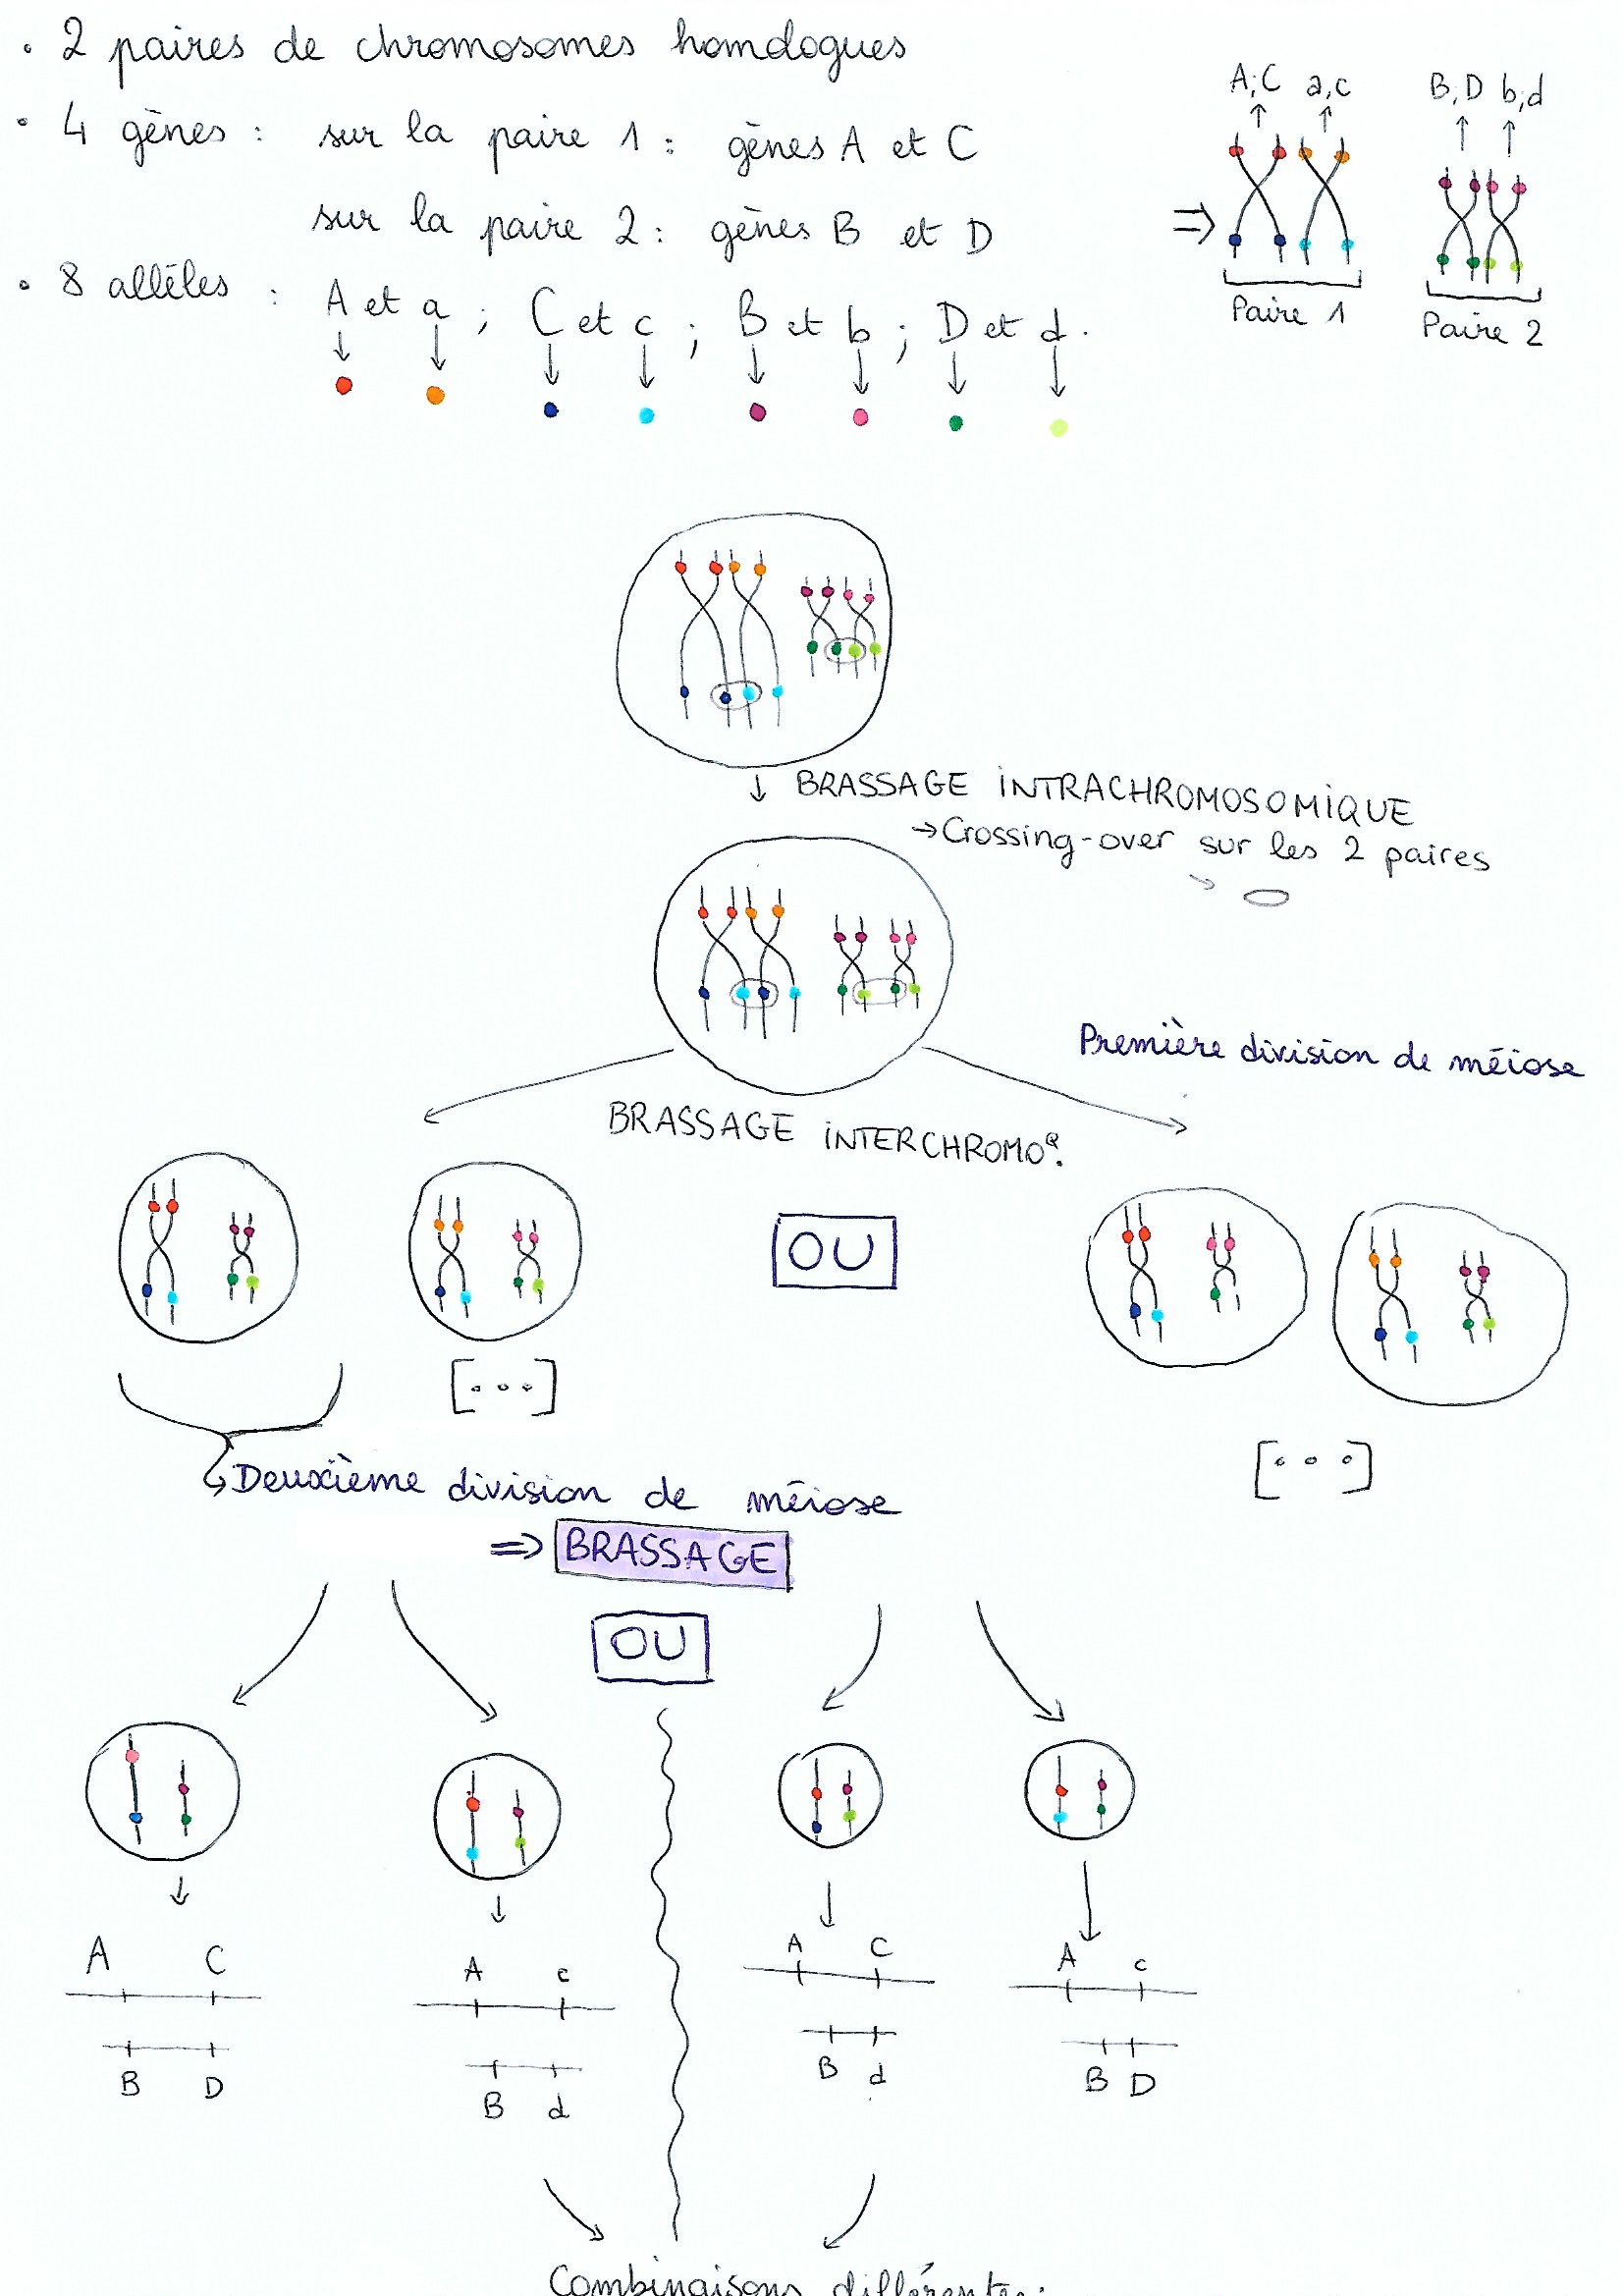 • 2 paires de chromosomes homologues
• 4 gènes : sur la paire 1 : gènes A et C
sur la paire 2 : gènes B et D
• 8 allèles : A et a ; C et c ; B et b ; D et d.
A;C a,c B,D b,d
⇒
Paire 1 Paire 2
↓ BRASSAGE INTRACHROMOSOMIQUE
→ Crossing-over sur les 2 paires
Première division de méiose
BRASSAGE INTERCHROMOQ.
OU
[...]
[...]
Deuxième division de méiose
⇒ BRASSAGE
OU
A C
B D
A c
B d
A C
B d
A c
B D
Combinaisons différentes :